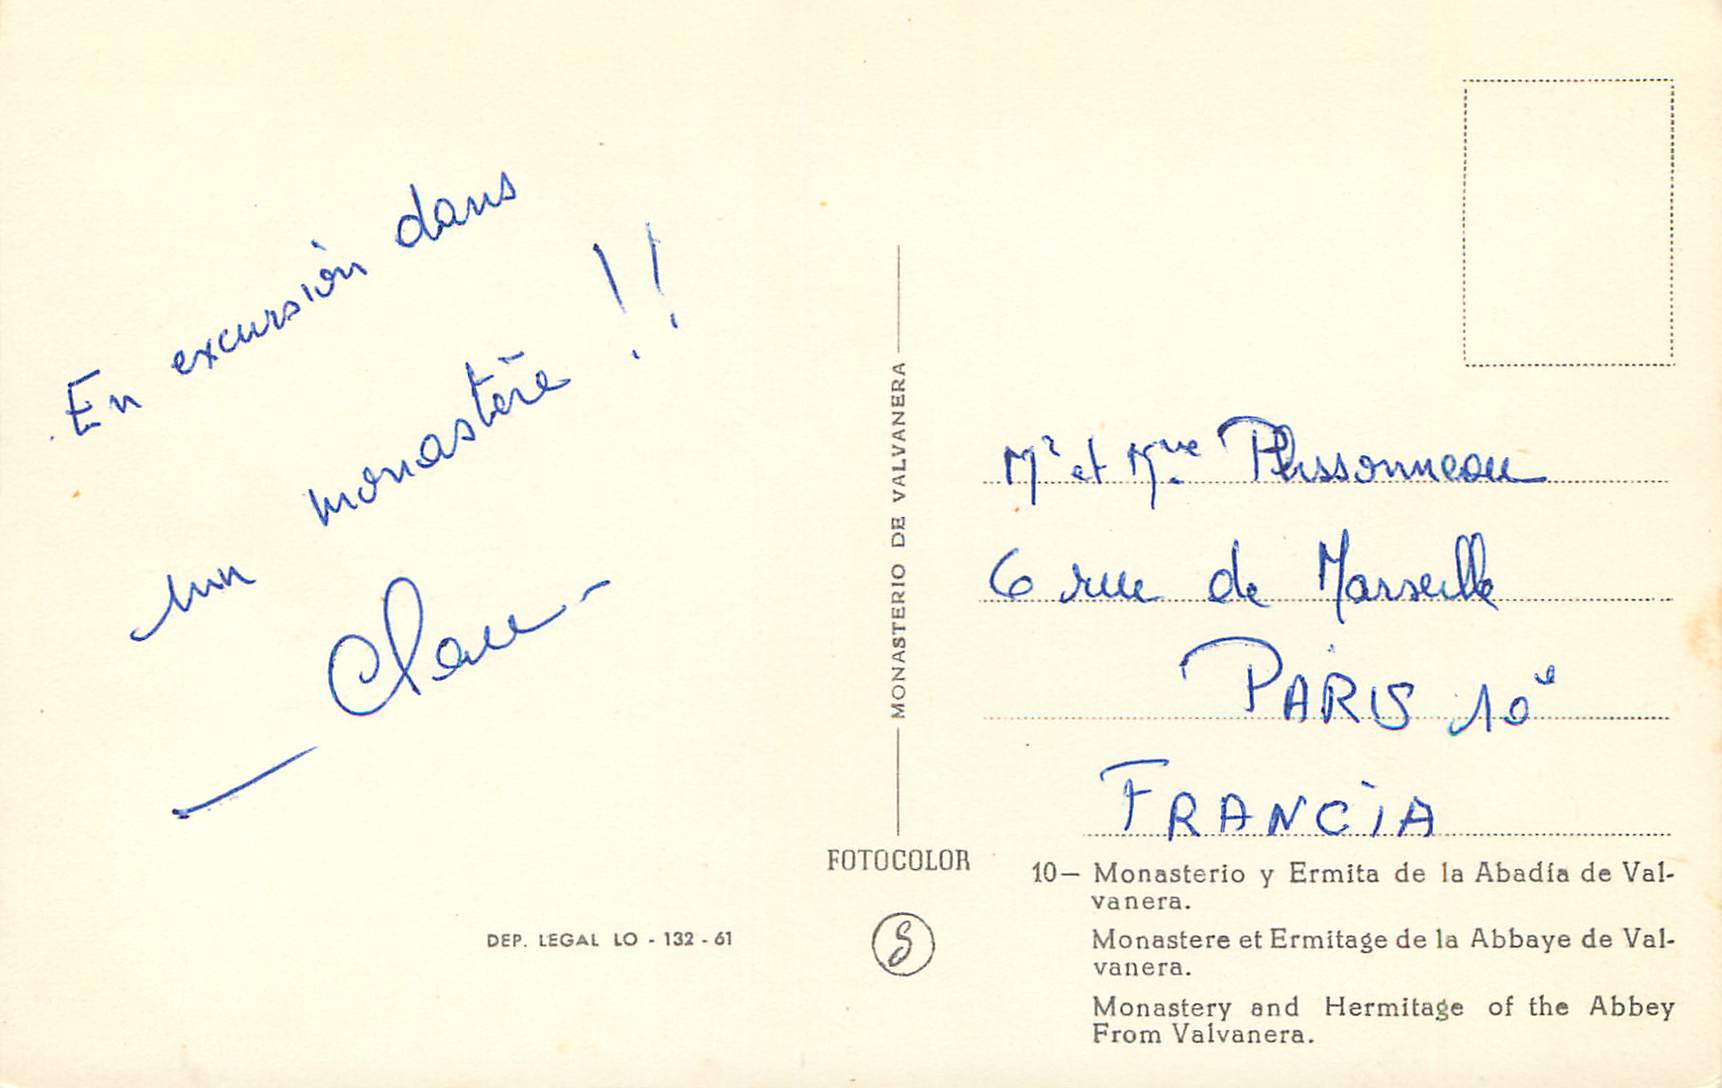 En excursión dans
un monastère !!
Mr et Mme Plissonneau
6 rue de Marseille
PARIS 10e
FRANCIA
MONASTERIO DE VALVANERA
FOTOCOLOR
DEP. LEGAL LO - 132 - 61
10— Monasterio y Ermita de la Abadía de Val-
vanera.
Monastere et Ermitage de la Abbaye de Val-
vanera.
Monastery and Hermitage of the Abbey
From Valvanera.